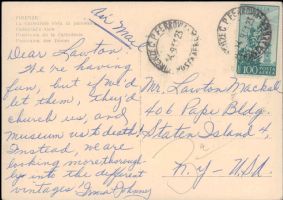 FIRENZE
La Cattedrale vista di fianco
Cathedral's view
Air Mail
Dear Lawton,
We're having
fun, but if we'd
let them, they'd
church us, and
museum us to death!
Instead, we are
looking more thorough-
ly into the different
vintages! Irma & Johnny
Mr. Lawton Mackall
406 Pape Bldg.
Staten Island 4,
N.Y. - USA
100